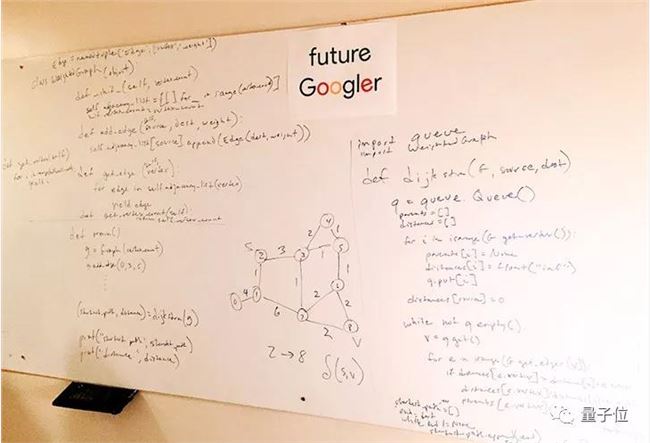 Edge = namedtuple('Edge', ['vertex', 'weight'])
class WeightedGraph(object)
def __init__(self, vertex_count)
self.adjacency_list = [[] for _ in range(vertex_count)]
def add_edge(self, source, dest, weight):
self.adjacency_list[source].append(Edge(dest, weight))
def get_vertex(self)
def get_edge(self, vertex):
for edge in self.adjacency_list(vertex)
yield edge
def get_vertex_count(self):
return self.vertex_count
def main()
g = Graph(vertex_count)
g.add
(shortest_path, distance) = dijkstra(g)
print("shortest path", shortest_path)
print("distance", distance)
future
Googler
S
4
2
1
2
3
3
1
5
1
1
1
0
4
1
2
6
2
6
7
2
8
V
2 → 8
δ(s,v)
import queue
import WeightedGraph
def dijkstra(G, source, dest)
q = queue.Queue()
parents = []
distances = []
for i in
parents[i] = None
distances[i] = float("inf")
q.put[i]
distances[source] = 0
while not q.empty()
v = q.get()
for e in
distances[e.vertex]
parents[e.vertex]
shortest_path = []
量子位